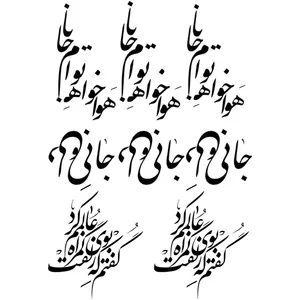 هواخواه توام جانا هواخواه توام جانا هواخواه توام جانا
جانی جانی جانی
گفتم که بوی زلفت گمراه عالمم کرد گفتم که بوی زلفت گمراه عالمم کرد